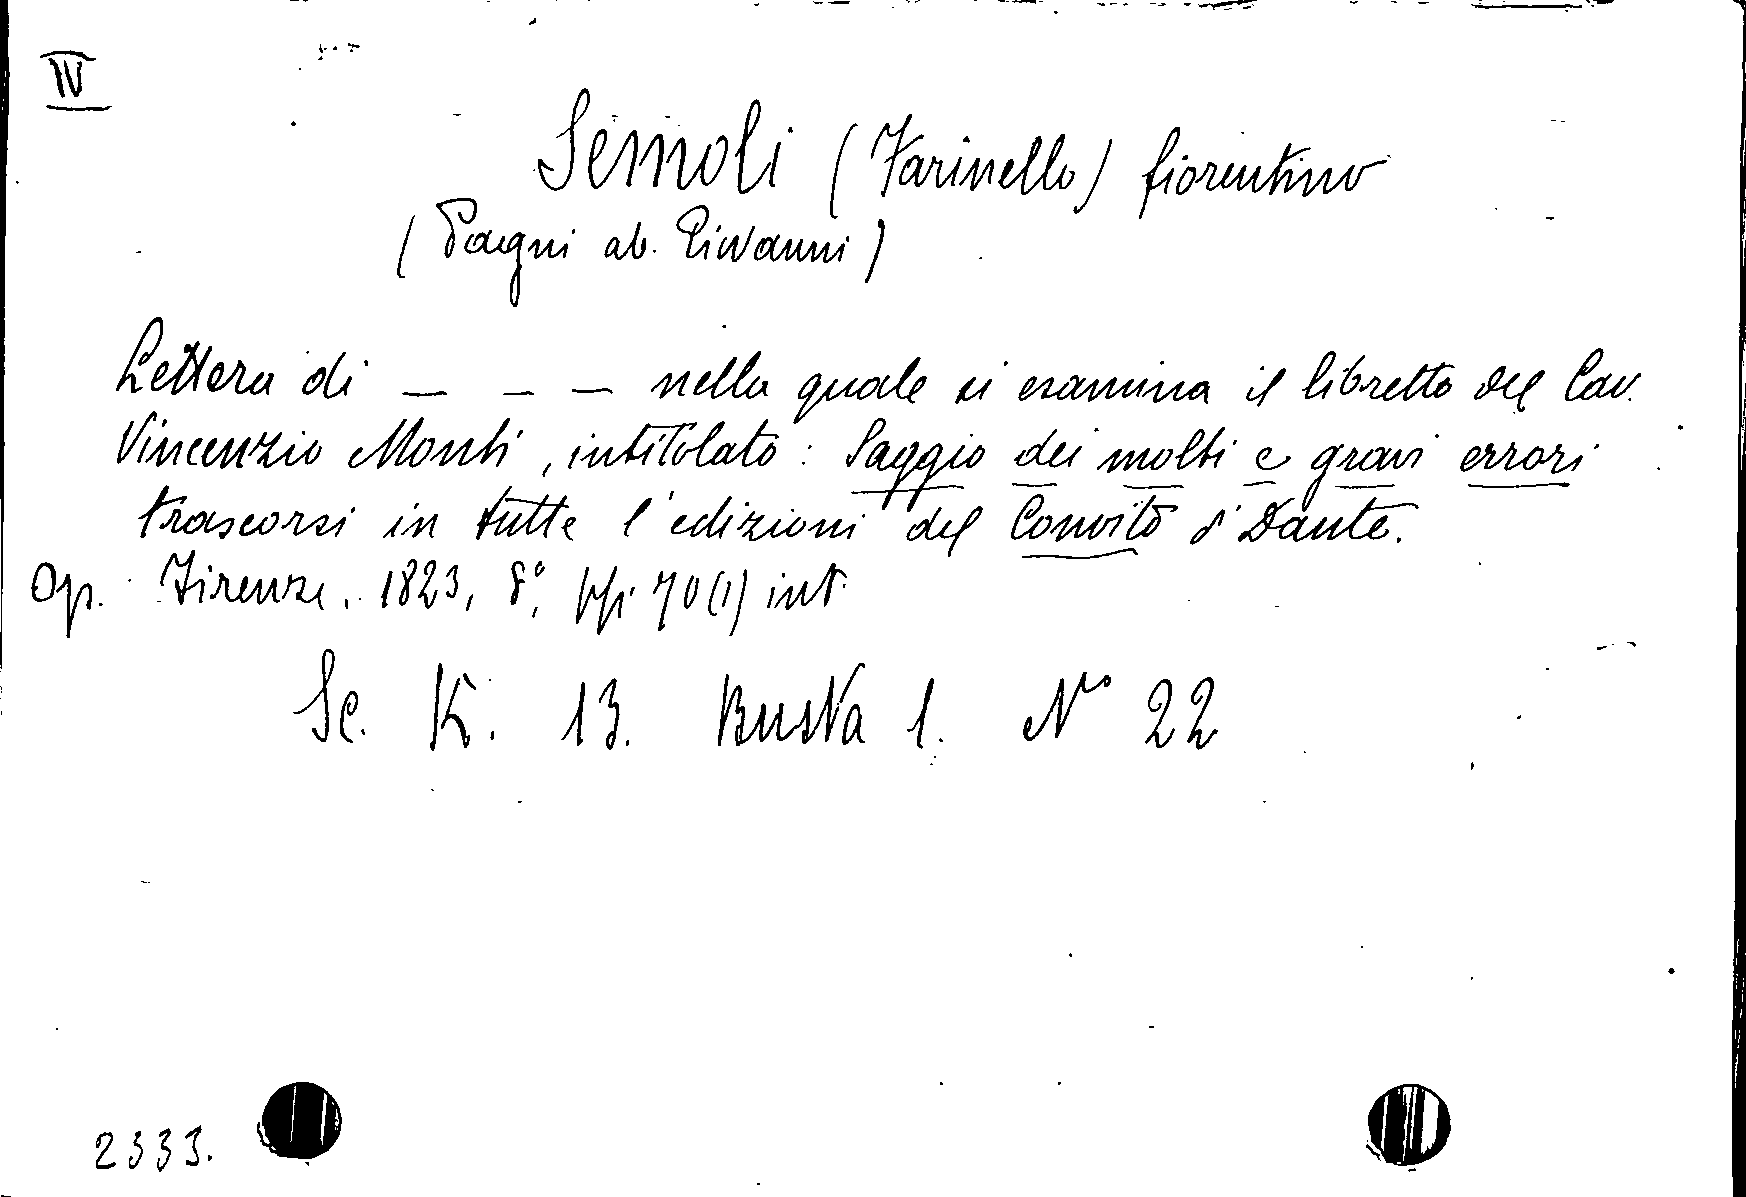 IV
Semoli (Farinello) fiorentino
(Pagni ab. Giovanni)
Lettera di _ _ _ nella quale si esamina il libretto del Cav.
Vincenzio Monti, intitolato: Saggio dei molti e gravi errori
trascorsi in tutte l'edizioni del Convito d'Dante.
Op. Firenze, 1823, 8°, pp. 70 (1) int.
Sc. K. 13. Busta 1. N° 22
2333.